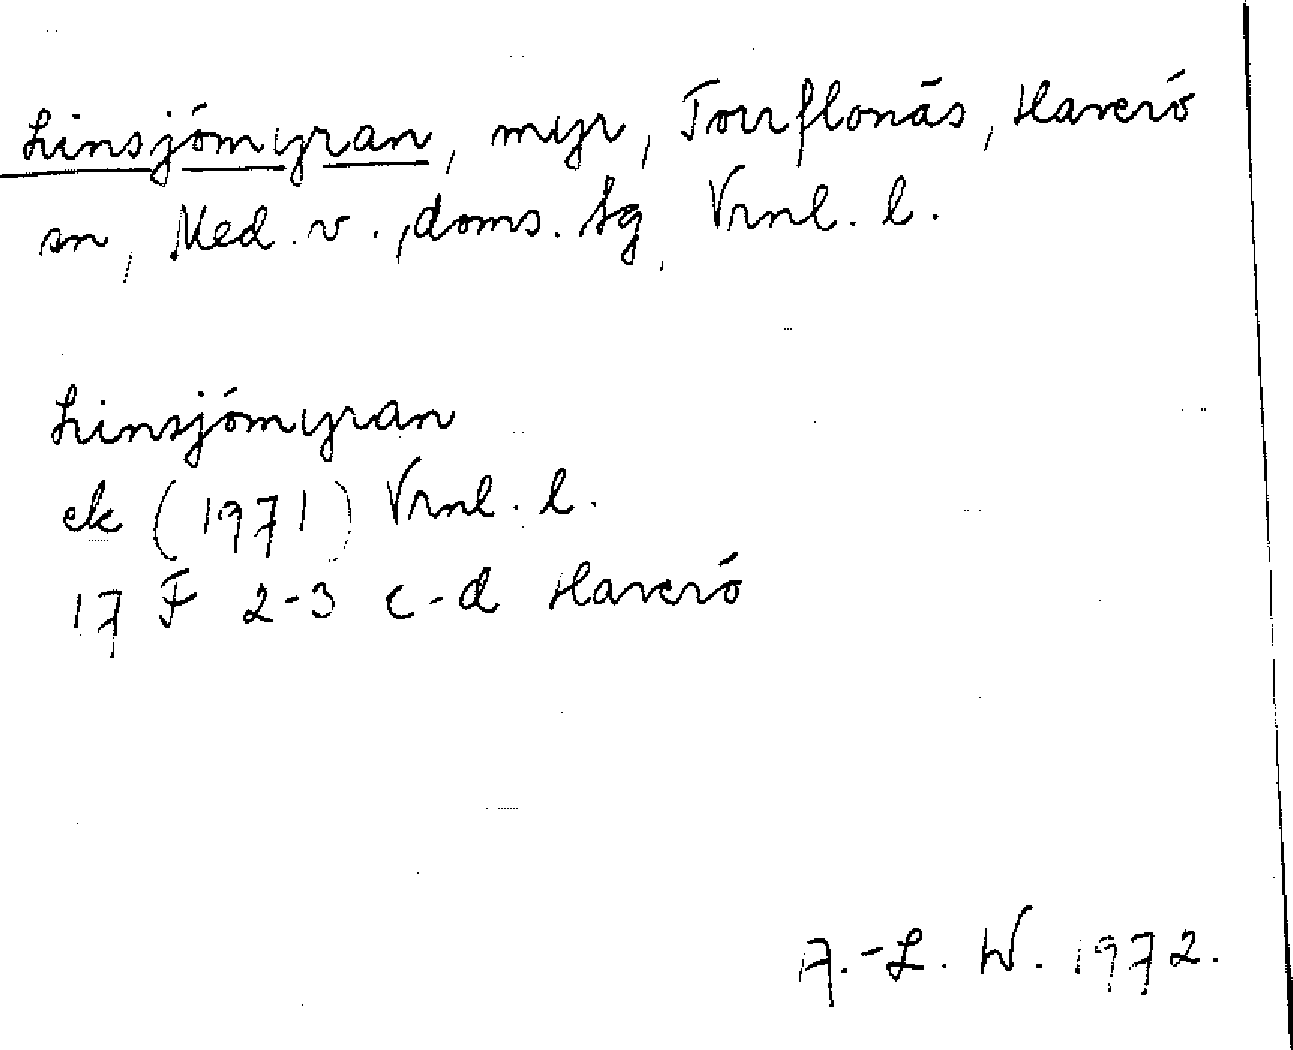 Linsjömyran, myr, Torrflonäs, Haverö
sn, Med. v., doms. tg, Vrnl. l.
Linsjömyran
ek (1971) Vrnl. l.
17 F 2-3 c-d Haverö
A.-L. W. 1972.